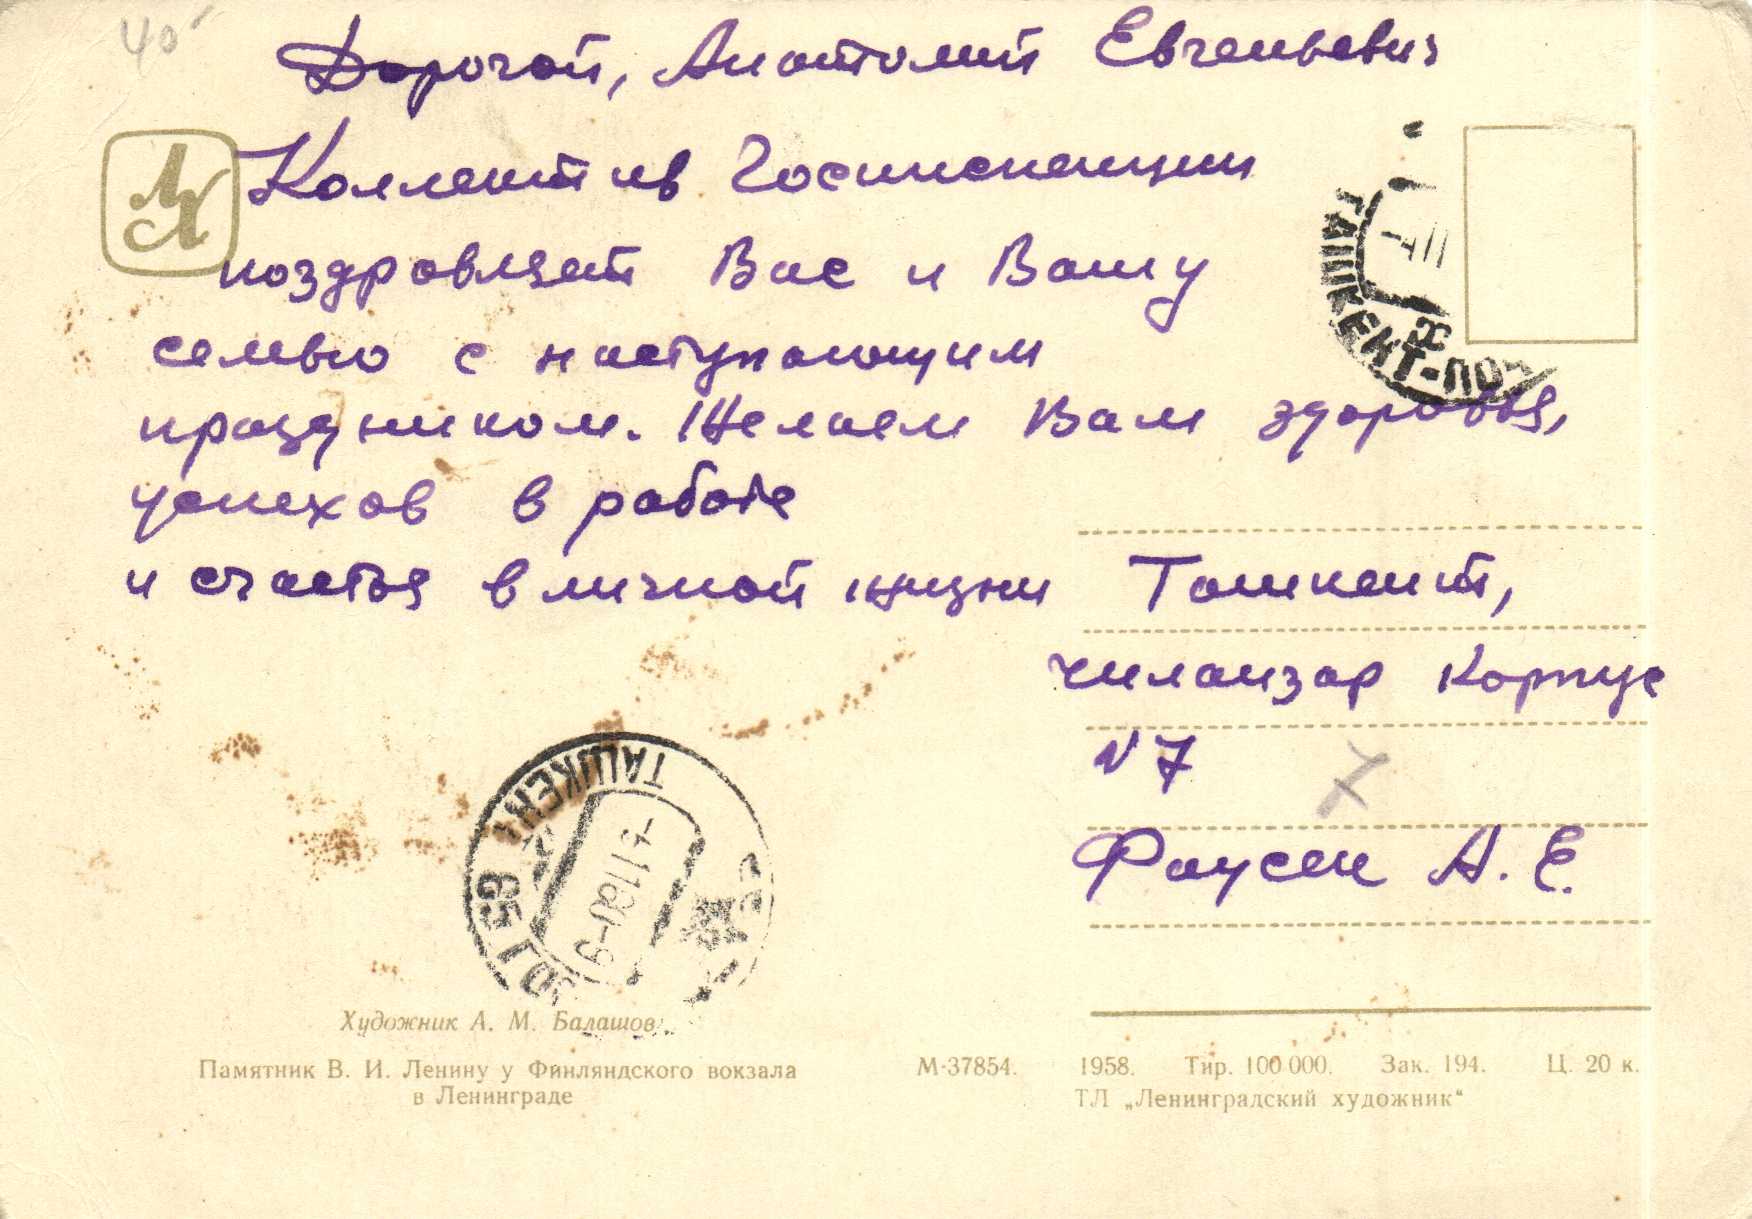 40
Дорогой, Анатолий Евгеньевич
Коллектив Госинспекции
поздравляет Вас и Вашу
семью с наступающим
праздником. Желаем Вам здоровья,
успехов в работе
и счастья в личной жизни
ЛХ
ТАШКЕНТ-ПОЧ
Ташкент,
чиланзар Корпус
N 7
7
Фаусек А. Е.
ТАШКЕНТ
Художник А. М. Балашов
Памятник В. И. Ленину у Финляндского вокзала
в Ленинграде
М-37854. 1958. Тир. 100 000. Зак. 194. Ц. 20 к.
ТЛ „Ленинградский художник“